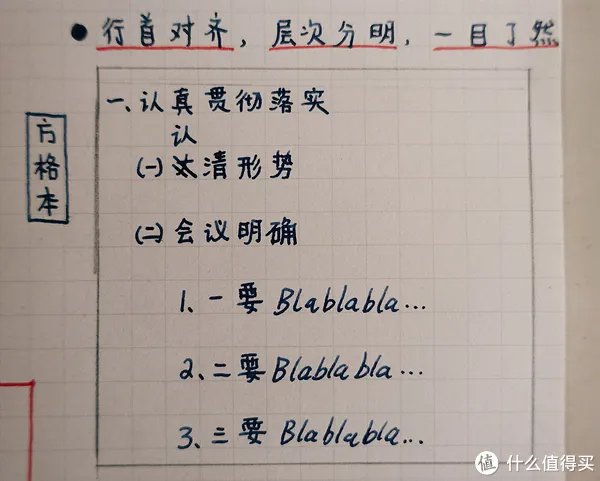 ● 行首对齐，层次分明，一目了然
方格本
一、认真贯彻落实
认
(一)清形势
(二)会议明确
1、一要Blablabla...
2、二要Blablabla...
3、三要Blablabla...
值 什么值得买